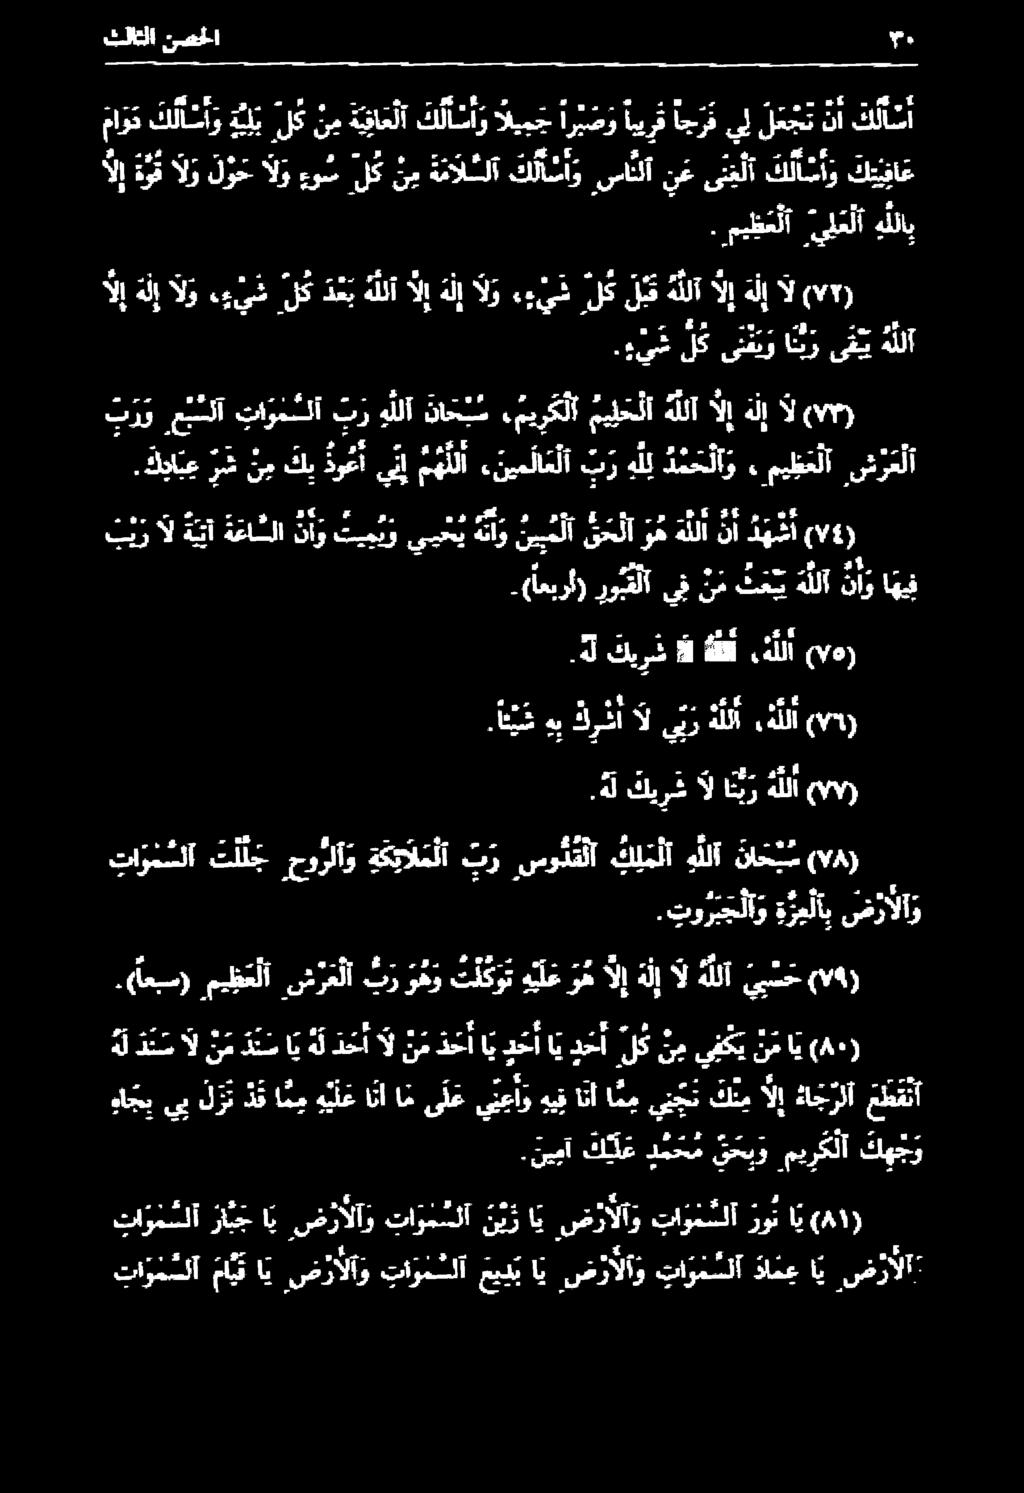 ٣٠ الحصن الثالث
أَسْأَلُكَ أَنْ تَجْعَلَ لِي فَرَجاً قَرِيباً وَصَبْراً جَمِيلاً وَأَسْأَلُكَ ٱلْعَافِيَةَ مِنْ كُلِّ بَلِيَّةٍ وَأَسْأَلُكَ دَوَامَ
عَافِيَتِكَ وَأَسْأَلُكَ ٱلْغِنَى عَنِ ٱلنَّاسِ وَأَسْأَلُكَ ٱلسَّلاَمَةَ مِنْ كُلِّ سُوءٍ وَلاَ حَوْلَ وَلاَ قُوَّةَ إِلاَّ
بِاللَّهِ ٱلْعَلِيِّ ٱلْعَظِيمِ.
(٧٢) لاَ إِلَهَ إِلاَّ ٱللَّهُ قَبْلَ كُلِّ شَيْءٍ، وَلاَ إِلَهَ إِلاَّ ٱللَّهُ بَعْدَ كُلِّ شَيْءٍ، وَلاَ إِلَهَ إِلاَّ
ٱللَّهُ يَبْقَى رَبُّنَا وَيَفْنَى كُلُّ شَيْءٍ.
(٧٣) لاَ إِلَهَ إِلاَّ ٱللَّهُ ٱلْحَلِيمُ ٱلْكَرِيمُ، سُبْحَانَ ٱللَّهِ رَبِّ ٱلسَّمٰوَاتِ ٱلسَّبْعِ وَرَبِّ
ٱلْعَرْشِ ٱلْعَظِيمِ، وَٱلْحَمْدُ لِلَّهِ رَبِّ ٱلْعَالَمِينَ، ٱللَّهُمَّ إِنِّي أَعُوذُ بِكَ مِنْ شَرِّ عِبَادِكَ.
(٧٤) أَشْهَدُ أَنَّ ٱللَّهَ هُوَ ٱلْحَقُّ ٱلْمُبِينُ وَأَنَّهُ يُحْيِي وَيُمِيتُ وَأَنَّ السَّاعَةَ آتِيَةٌ لاَ رَيْبَ
فِيهَا وَأَنَّ ٱللَّهَ يَبْعَثُ مَنْ فِي ٱلْقُبُورِ (أربعاً).
(٧٥) أَللَّهُ، أَللَّهُ لاَ شَرِيكَ لَهُ.
(٧٦) أَللَّهُ، أَللَّهُ رَبِّي لاَ أُشْرِكُ بِهِ شَيْئاً.
(٧٧) أَللَّهُ رَبُّنَا لاَ شَرِيكَ لَهُ.
(٧٨) سُبْحَانَ ٱللَّهِ ٱلْمَلِكِ ٱلْقُدُّوسِ رَبِّ ٱلْمَلاَئِكَةِ وَٱلرُّوحِ جَلَّلْتَ ٱلسَّمٰوَاتِ
وَٱلأَرْضَ بِٱلْعِزَّةِ وَٱلْجَبَرُوتِ.
(٧٩) حَسْبِيَ ٱللَّهُ لاَ إِلَهَ إِلاَّ هُوَ عَلَيْهِ تَوَكَّلْتُ وَهُوَ رَبُّ ٱلْعَرْشِ ٱلْعَظِيمِ (سبعاً).
(٨٠) يَا مَنْ يَكْفِي مِنْ كُلِّ أَحَدٍ يَا أَحَدٍ يَا أَحَدَ مَنْ لاَ أَحَدَ لَهُ يَا سَنَدَ مَنْ لاَ سَنَدَ لَهُ
ٱنْقَطَعَ ٱلرَّجَاءُ إِلاَّ مِنْكَ نَجِّنِي مِمَّا أَنَا فِيهِ وَأَعِنِّي عَلَى مَا أَنَا عَلَيْهِ مِمَّا قَدْ نَزَلَ بِي بِجَاهِ
وَجْهِكَ ٱلْكَرِيمِ وَبِحَقِّ مُحَمَّدٍ عَلَيْكَ آمِينَ.
(٨١) يَا نُورَ ٱلسَّمٰوَاتِ وَٱلأَرْضِ يَا زَيْنَ ٱلسَّمٰوَاتِ وَٱلأَرْضِ يَا جَبَّارَ ٱلسَّمٰوَاتِ
وَٱلأَرْضِ يَا عِمَادَ ٱلسَّمٰوَاتِ وَٱلأَرْضِ يَا بَدِيعَ ٱلسَّمٰوَاتِ وَٱلأَرْضِ يَا قَيَّامَ ٱلسَّمٰوَاتِ